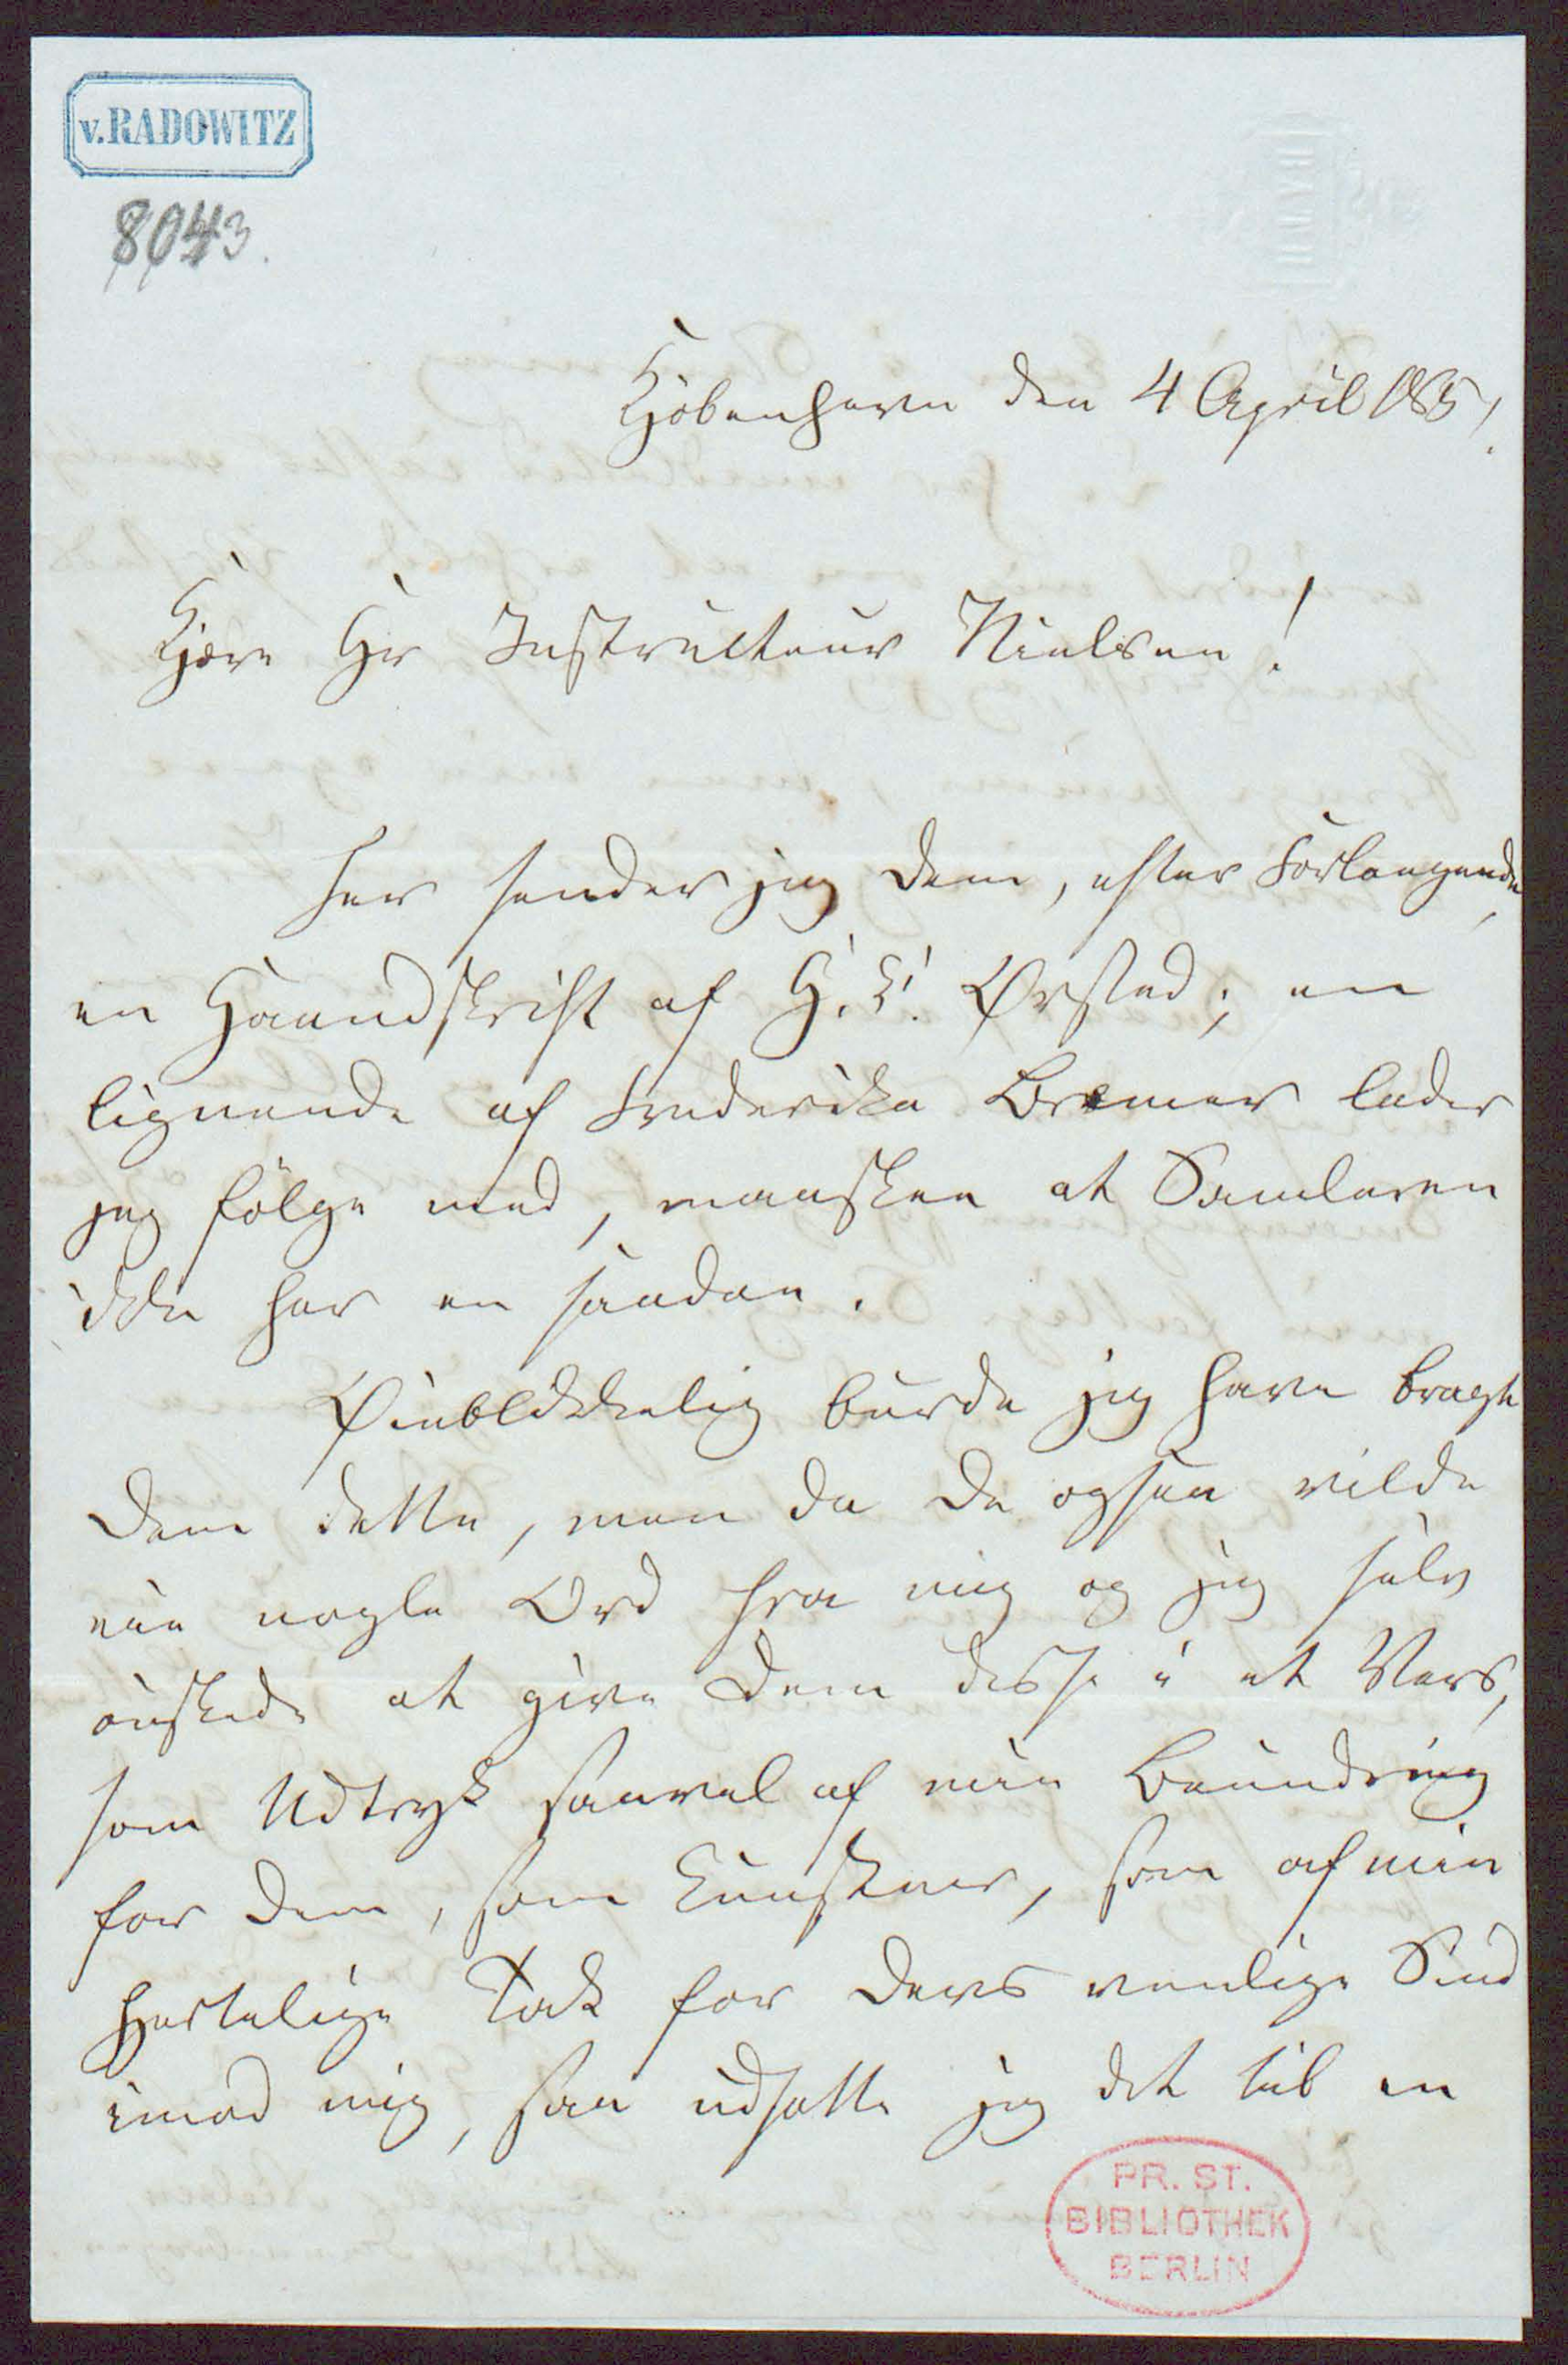 v. RADOWITZ
8043.
Kjöbenhavn den 4 April 1851.
Kjære Hr Instructeur Nielsen!
Her sender jeg Dem, efter Forlangende,
en Haandskrift af H. C. Ørsted; en
lignende af Frederikka Bremer lader
jeg følge med, maaskee at Samleren
ikke har en saadan.
Øieblikkelig burde jeg have bragt
Dem dette, men da De ogsaa vilde
eie nogle Ord fra mig og jeg selv
ønskede at give Dem disse i et Vers,
som Udtryk saavel af min Beundring
for Dem, som Kunstner, som af min
hjertelige Tak for Deres venlige Sind
imod mig, saa udsatte jeg det til en
PR. ST.
BIBLIOTHEK
BERLIN